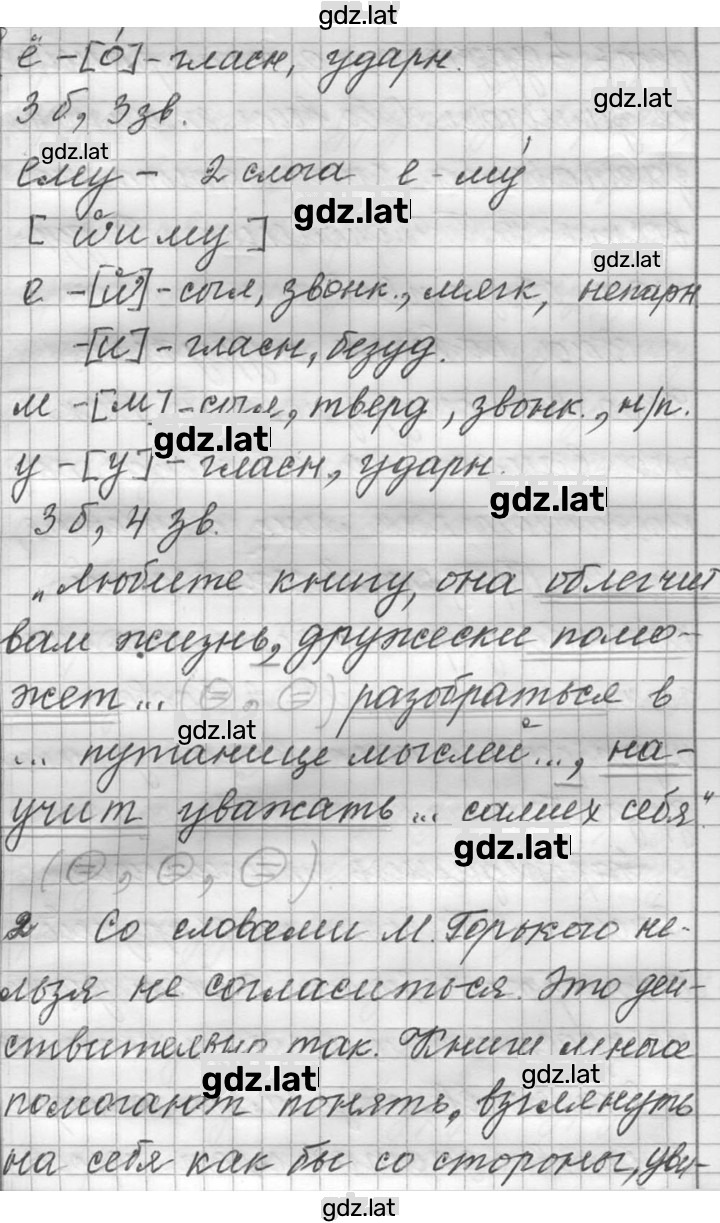 gdz.lat
ё - [о́] - гласн, ударн.
3 б, 3 зв.
gdz.lat
gdz.lat
ему - 2 слога е - му́
gdz.lat
[ й'иму ]
gdz.lat
е - [й'] - согл, звонк., мягк, непарн
- [и] - гласн, безуд.
м - [м] - согл, тверд, звонк., н/п.
gdz.lat
у - [у] - гласн, ударн.
gdz.lat
3 б, 4 зв.
„Любите книгу, она облегчит
вам жизнь, дружески помо-
жет ... (=, =) разобраться в
gdz.lat
... путанице мыслей ..., на-
учит уважать ... самих себя."
gdz.lat
(=, =, =).
2 Со словами М. Горького не-
льзя не согласиться. Это дей-
ствительно так. Книги мнье
gdz.lat
gdz.lat
помогают понять, взглянуть
на себя как бы со стороны, уви-
gdz.lat